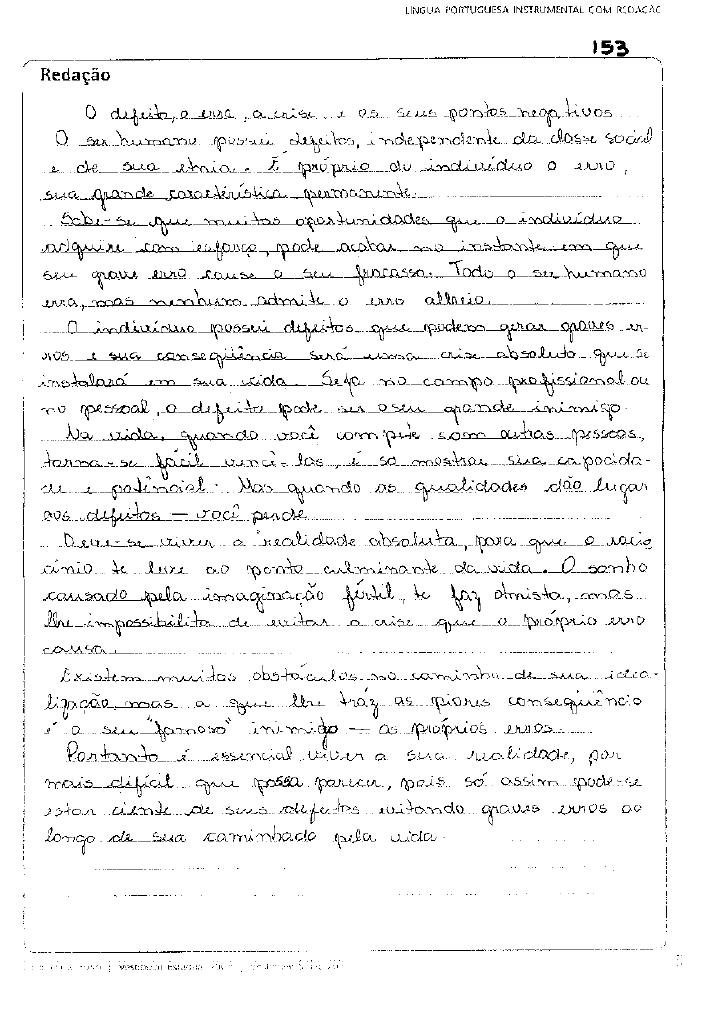 LÍNGUA PORTUGUESA INSTRUMENTAL COM REDAÇÃO
153
Redação
O defeito, o erro, a crise e os seus pontos negativos
O ser humano possui defeitos, independente da classe social
e de sua etnia. É próprio do indivíduo o erro,
sua grande característica permanente.
Sabe-se que muitas oportunidades que o indivíduo
adquire com esforço, pode acabar no instante em que
seu grave erro cause o seu fracasso. Todo o ser humano
erra, mas nenhum admite o erro alheio.
O indivíduo possui defeitos que podem gerar graves er-
ros e sua conseqüência será uma crise absoluta que se
instalará em sua vida. Seja no campo profissional ou
no pessoal, o defeito pode ser o seu grande inimigo.
Na vida, quando você compete com outras pessoas,
torna-se fácil vencê-las, é so mostrar sua capacida-
de e potêncial. Mas quando as qualidades dão lugar
aos defeitos — você perde.
Deve-se viver a realidade absoluta, para que o racio
cínio te leve ao ponto culminante da vida. O sonho
causado pela imaginação fértil, te faz otmista, mas
lhe impossibilita de evitar a crise que o próprio erro
causa.
Existem muitos obstáculos no caminho de sua idea-
lização, mas a que lhe tráz as piores conseqüência
é o seu "famoso" inimigo — os próprios erros.
Portanto é essencial viver a sua realidade, por
mais difícil que possa parecer, pois só assim pode-se
estar ciente de seus defeitos evitando graves erros ao
longo de sua caminhada pela vida.